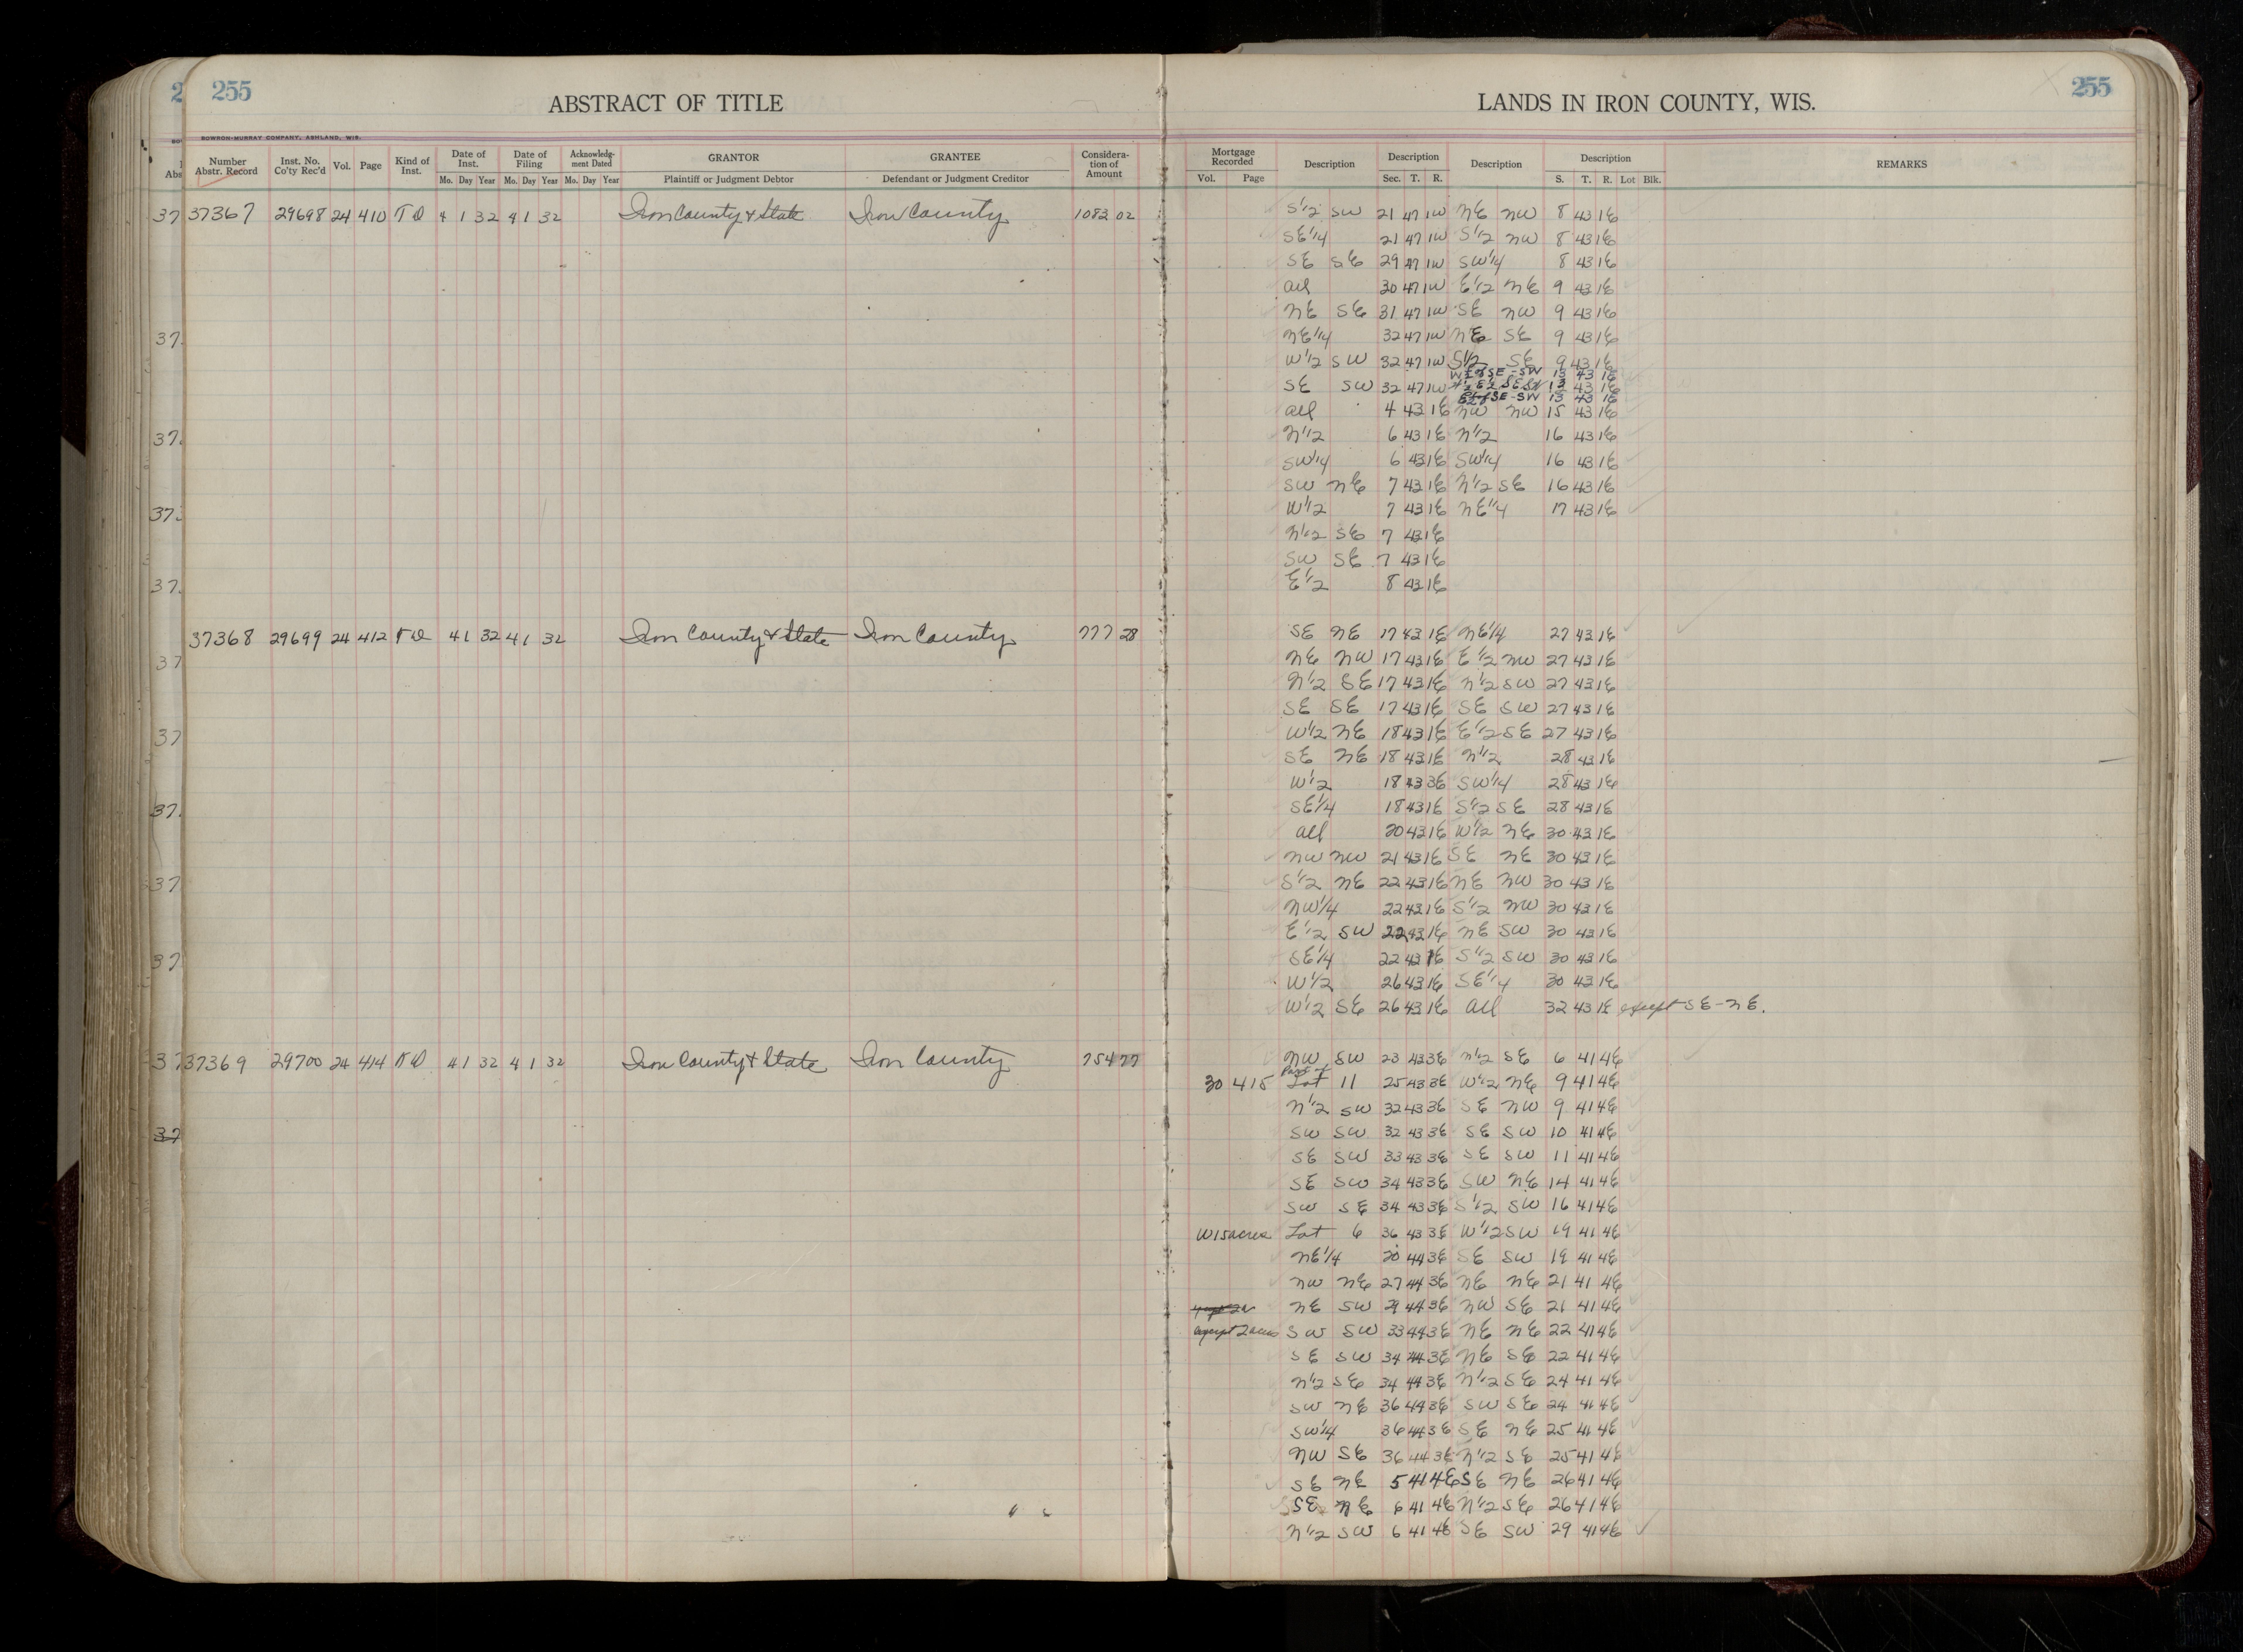 255
ABSTRACT OF TITLE
LANDS IN IRON COUNTY, WIS.
255
BOWRON-MURRAY COMPANY, ASHLAND, WIS.
Number Abstr. Record Inst. No. Co'ty Rec'd Vol. Page Kind of Inst. Date of Inst. Mo. Day Year Date of Filing Mo. Day Year Acknowledgment Dated Mo. Day Year GRANTOR Plaintiff or Judgment Debtor GRANTEE Defendant or Judgment Creditor Consideration of Amount
Mortgage Recorded Vol. Page Description Description Sec. T. R. Description Description S. T. R. Lot Blk. REMARKS
37367 29698 24 410 T D 4 1 32 4 1 32 Iron County & State Iron County 1083 02 S1/2 SW 21 47 1W NE NW 8 43 1E
SE1/4 21 47 1W S1/2 NW 8 43 1E
SE SE 29 47 1W SW1/4 8 43 1E
all 30 47 1W E1/2 NE 9 43 1E
NE SE 31 47 1W SE NW 9 43 1E
NE1/4 32 47 1W NE SE 9 43 1E
W1/2 SW 32 47 1W S1/2 SE 9 43 1E
SE-SW 13 43 1E
SE SW 32 47 1W 13 43 1E
SE-SW 13 43 1E
all 4 43 1E NW NW 15 43 1E
N1/2 6 43 1E N1/2 16 43 1E
SW1/4 6 43 1E SW1/4 16 43 1E
SW NE 7 43 1E N1/2 SE 16 43 1E
W1/2 7 43 1E NE1/4 17 43 1E
N1/2 SE 7 43 1E
SW SE 7 43 1E
E1/2 8 43 1E
37368 29699 24 412 T D 4 1 32 4 1 32 Iron County & State Iron County 777 28 SE NE 17 43 1E NE1/4 27 43 1E
NE NW 17 43 1E E1/2 NW 27 43 1E
N1/2 SE 17 43 1E N1/2 SW 27 43 1E
SE SE 17 43 1E SE SW 27 43 1E
W1/2 NE 18 43 1E E1/2 SE 27 43 1E
SE NE 18 43 1E N1/2 28 43 1E
W1/2 18 43 3E SW1/4 28 43 1E
SE1/4 18 43 1E S1/2 SE 28 43 1E
all 20 43 1E W1/2 NE 30 43 1E
NW NW 21 43 1E SE NE 30 43 1E
S1/2 NE 22 43 1E NE NW 30 43 1E
NW1/4 22 43 1E S1/2 NW 30 43 1E
E1/2 SW 22 43 1E NE SW 30 43 1E
SE1/4 22 43 1E S1/2 SW 30 43 1E
W1/2 26 43 1E SE1/4 30 43 1E
W1/2 SE 26 43 1E all 32 43 1E except SE-NE.
37369 29700 24 414 T D 4 1 32 4 1 32 Iron County & State Iron County 754 77 NW SW 23 43 3E N1/2 SE 6 41 4E
Part of
30 415 Lot 11 25 43 3E W1/2 NE 9 41 4E
N1/2 SW 32 43 3E SE NW 9 41 4E
SW SW 32 43 3E SE SW 10 41 4E
SE SW 33 43 3E SE SW 11 41 4E
SE SW 34 43 3E SW NE 14 41 4E
SW SE 34 43 3E S1/2 SW 16 41 4E
W15acres Lot 6 36 43 3E W1/2 SW 19 41 4E
NE1/4 20 44 3E SE SW 19 41 4E
NW NE 27 44 3E NE NE 21 41 4E
NE SW 29 44 3E NW SE 21 41 4E
except 2 acres SW SW 33 44 3E NE NE 22 41 4E
SE SW 34 44 3E NE SE 22 41 4E
N1/2 SE 34 44 3E N1/2 SE 24 41 4E
SW NE 36 44 3E SW SE 24 41 4E
SW1/4 36 44 3E SE NE 25 41 4E
NW SE 36 44 3E N1/2 SE 25 41 4E
SE NE 5 41 4E SE NE 26 41 4E
SE NE 6 41 4E N1/2 SE 26 41 4E
N1/2 SW 6 41 4E SE SW 29 41 4E